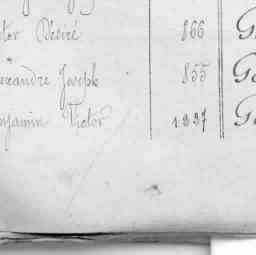 ctor Désiré 866 G
lexandre Joseph 855 G
enjamin Victor 1227 G